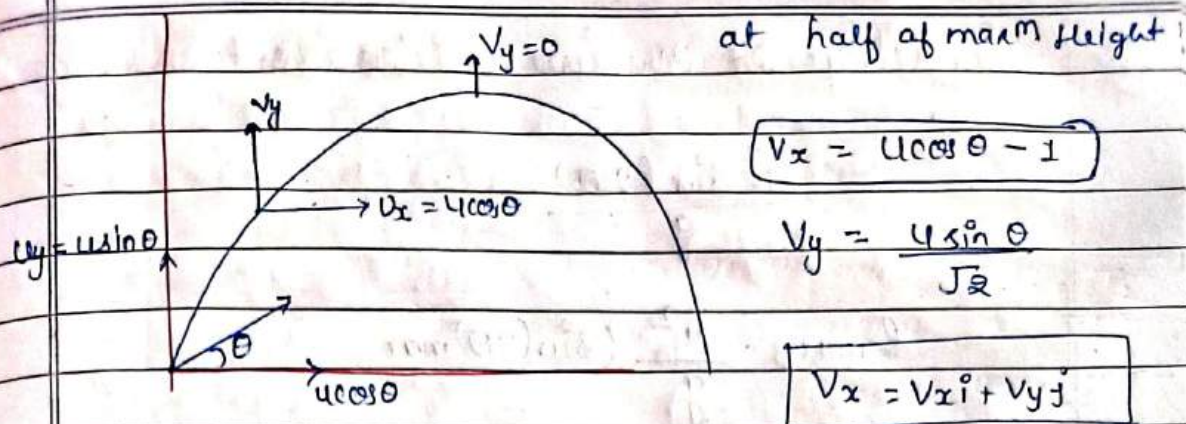 at half of maxm Height
Vy=0
Vy
Vx = ucosθ - 1
Ux = ucosθ
uy = usinθ
Vy = u sin θ / √2
θ
ucosθ
Vx = Vxi + Vyj